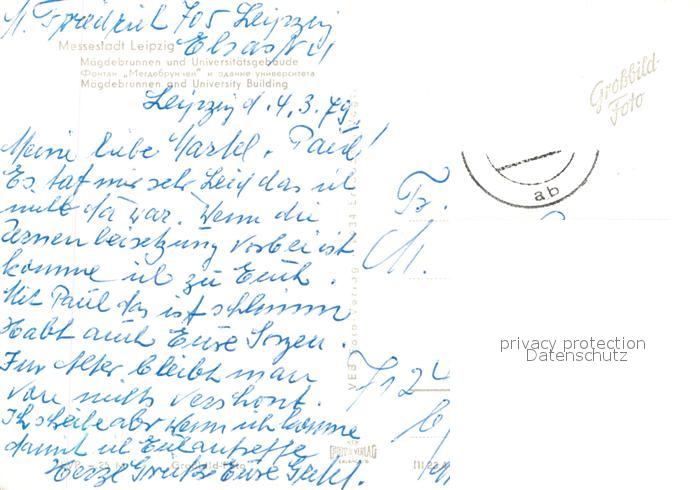 M. Friedrich 705 Leipzig
Messestadt Leipzig
Mägdebrunnen und Universitätsgebäude
Фонтан „Мегдебруннен" и здание университета
Mägdebrunnen and University Building
Leipzig d. 4.3.79.
Meine liebe Martel. Paul!
Es taf mir sehr Leid das ich
nicht da war. Wenn die
beisetzung vorbei ist
komme ich zu Euch.
Mit Paul das ist schlimm
Habt auch Eure Sorgen.
Im Alter bleibt man
von nichts verschont.
Ich schreibe aber wenn ich komme
damit ich Euch antreffe
Herzl Grüße Eure
Großbild-
Foto
ab
Fr.
M.
7124
privacy protection
Datenschutz
VEB Foto-Verlag
FOTO VERLAG
Großbild-Foto